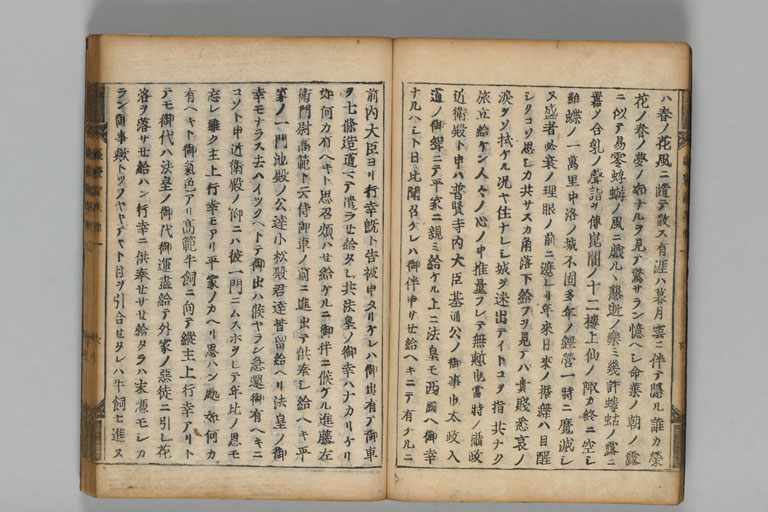 ハ春ノ花風ニ隨テ散ス有涯ハ暮月雲ニ伴テ隱ル誰カ榮
花ノ春ノ夢ノ如ナルヲ見テ驚サラン憶ヘシ命葉ノ朝ノ露
ニ似テ易零蜉蝣ノ風ニ戯ルル懇逝ノ樂ミ幾許螻蛄ノ露ニ
合乱ノ聲韵ヲ傳崑閬ノ十二樓上仙ノ陬カ終ニ空シ
雖蝶ノ一萬里中洛ノ城不固多年ノ經營一時ニ魔滅シ
ヌ盛者必衰ノ理眼ノ前ニ遮レリ年來日來ノ振舞ハ目醒
シクコソ思シカ共サスカ角落下給フヲ見テハ貴賤悉哀ノ
淚ヲソ拭ケル况ヤ住ナレシ城ヲ迷出テイトコヲ指共ナク
旅立給ケン人々ノ心ノ中推量ラレテ無慙也當時ノ攝政
近衛殿ト申ハ普賢寺内大臣基通公ノ御事也太政入
道ノ御聟ニテ平家ニ親ミ給ケル上ニ法皇モ西國ヘ御幸
ナルヘシト日比聞召ケレハ御伴申サセ給ヘキニテ有ケルニ
前内大臣ヨリ行幸既ト告被申タリケレハ御出有テ御車
ヲ七條造道マテ遣ラセ給タレ共法皇ノ御幸ハナカリケリ
如何カ有ヘキト思召煩ハセ給ケルニ御伴ニ候ケル進藤左
衛門尉高範ト云侍御車ノ前ニ進出テ供奉シ給ヘキ平
家ノ一門池殿ノ公達小松殿君達皆留給ヘリ法皇ノ御
幸モナラス去ハイツクヘトテ御出ハ候ヤラン急還御有ヘキニ
コソト申近衛殿ノ仰ニハ彼一門ニムスホヲレテ年比ノ恩モ
忘レ難ク主上行幸モアリ平家ノカヘリ思ハン処如何カ
有ヘキト御氣色アリ高範牛飼ニ向テ縱主上行幸アリト
テモ御代ハ法皇ノ御代御運盡給テ外家ノ惡徒ニ引レ花
洛ヲ落サセ給ハン行幸ニ供奉セサセ給タラハ末憑モシカ
ラン御事歟トツフヤキテキト目ヲ引合セタレハ牛飼モ進ヌ